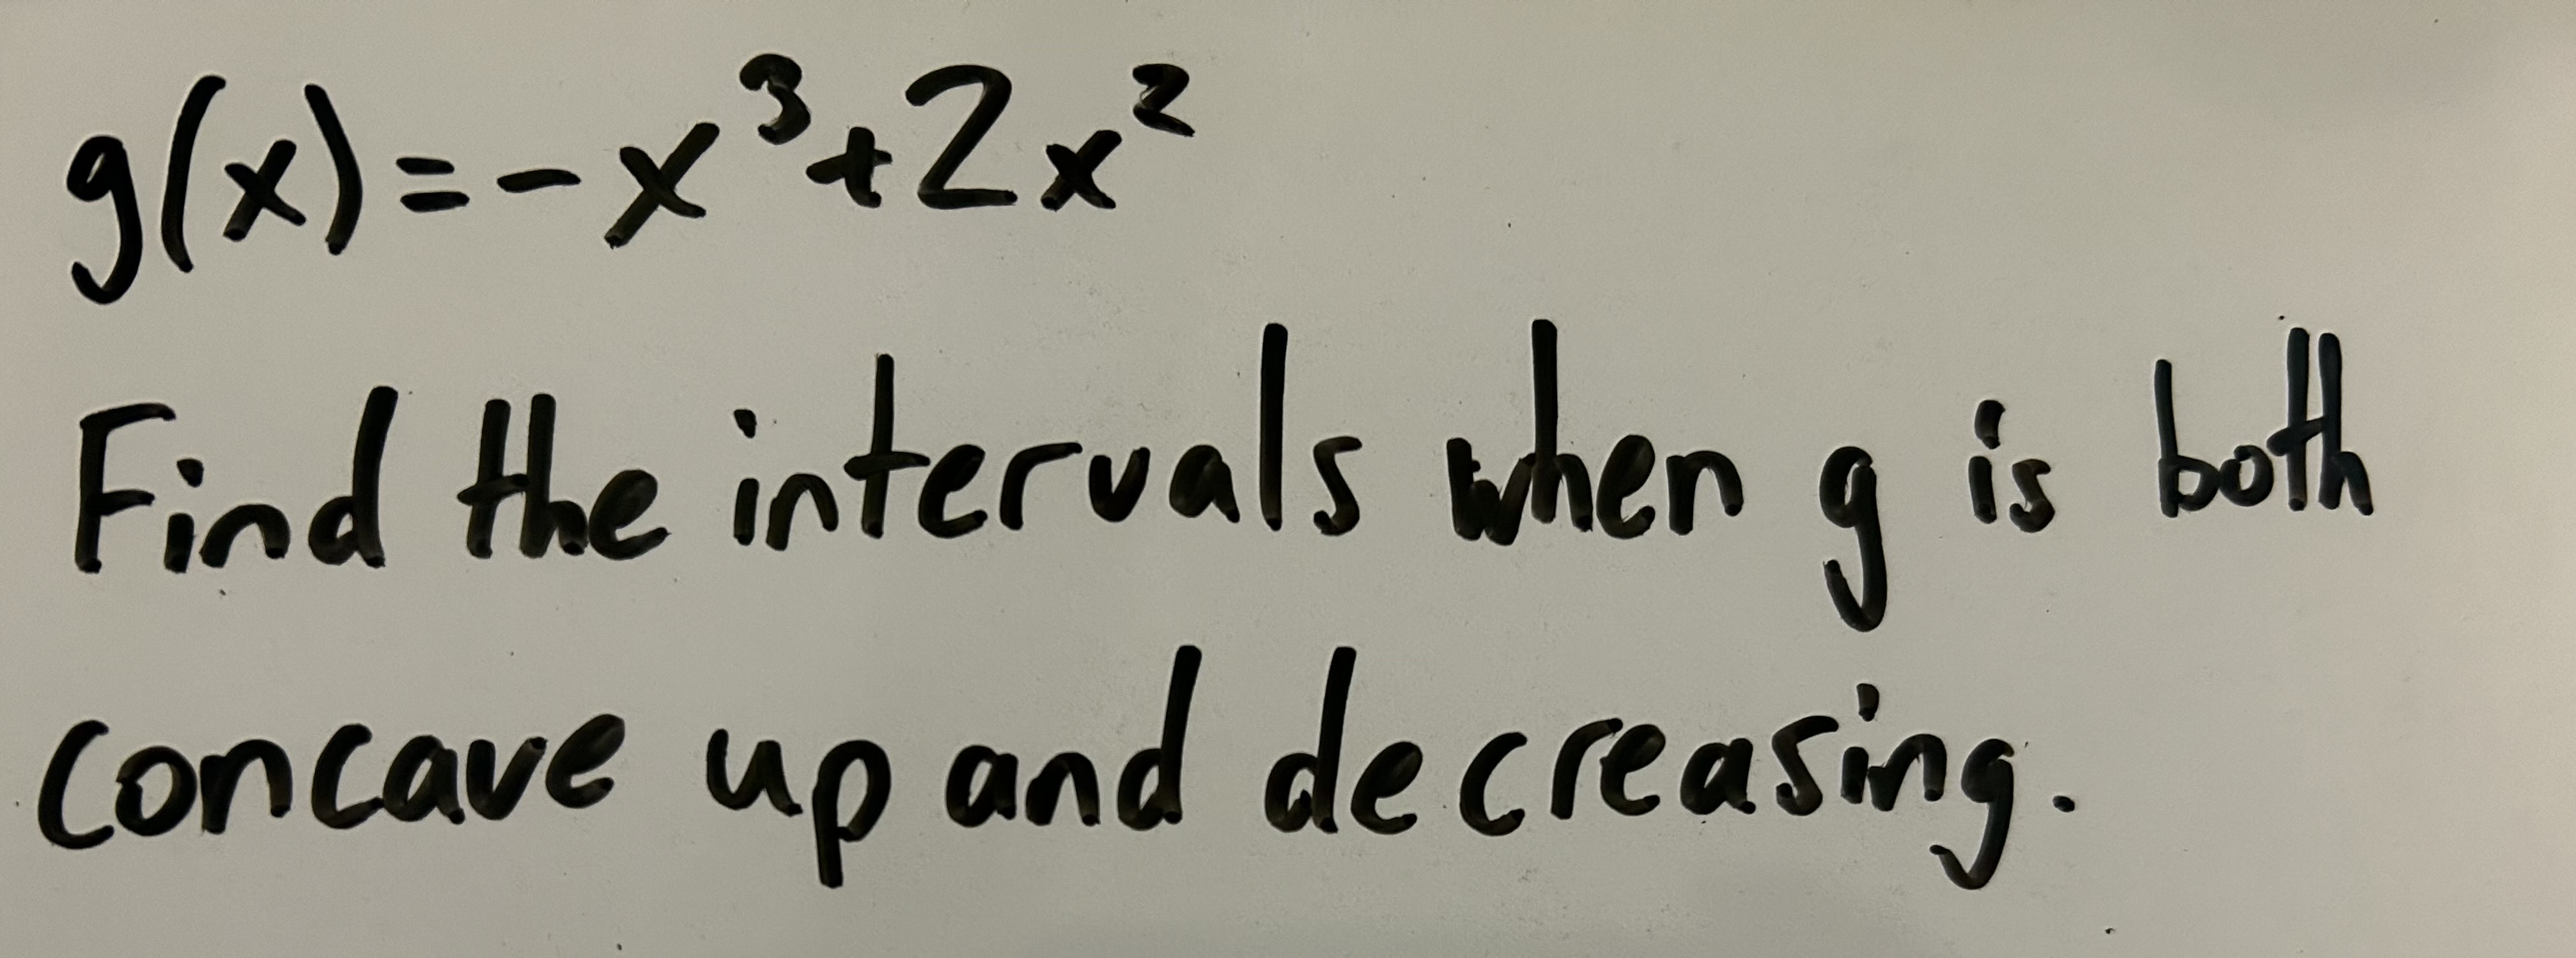 g(x)=-x³+2x²
Find the intervals when g is both
concave up and decreasing.